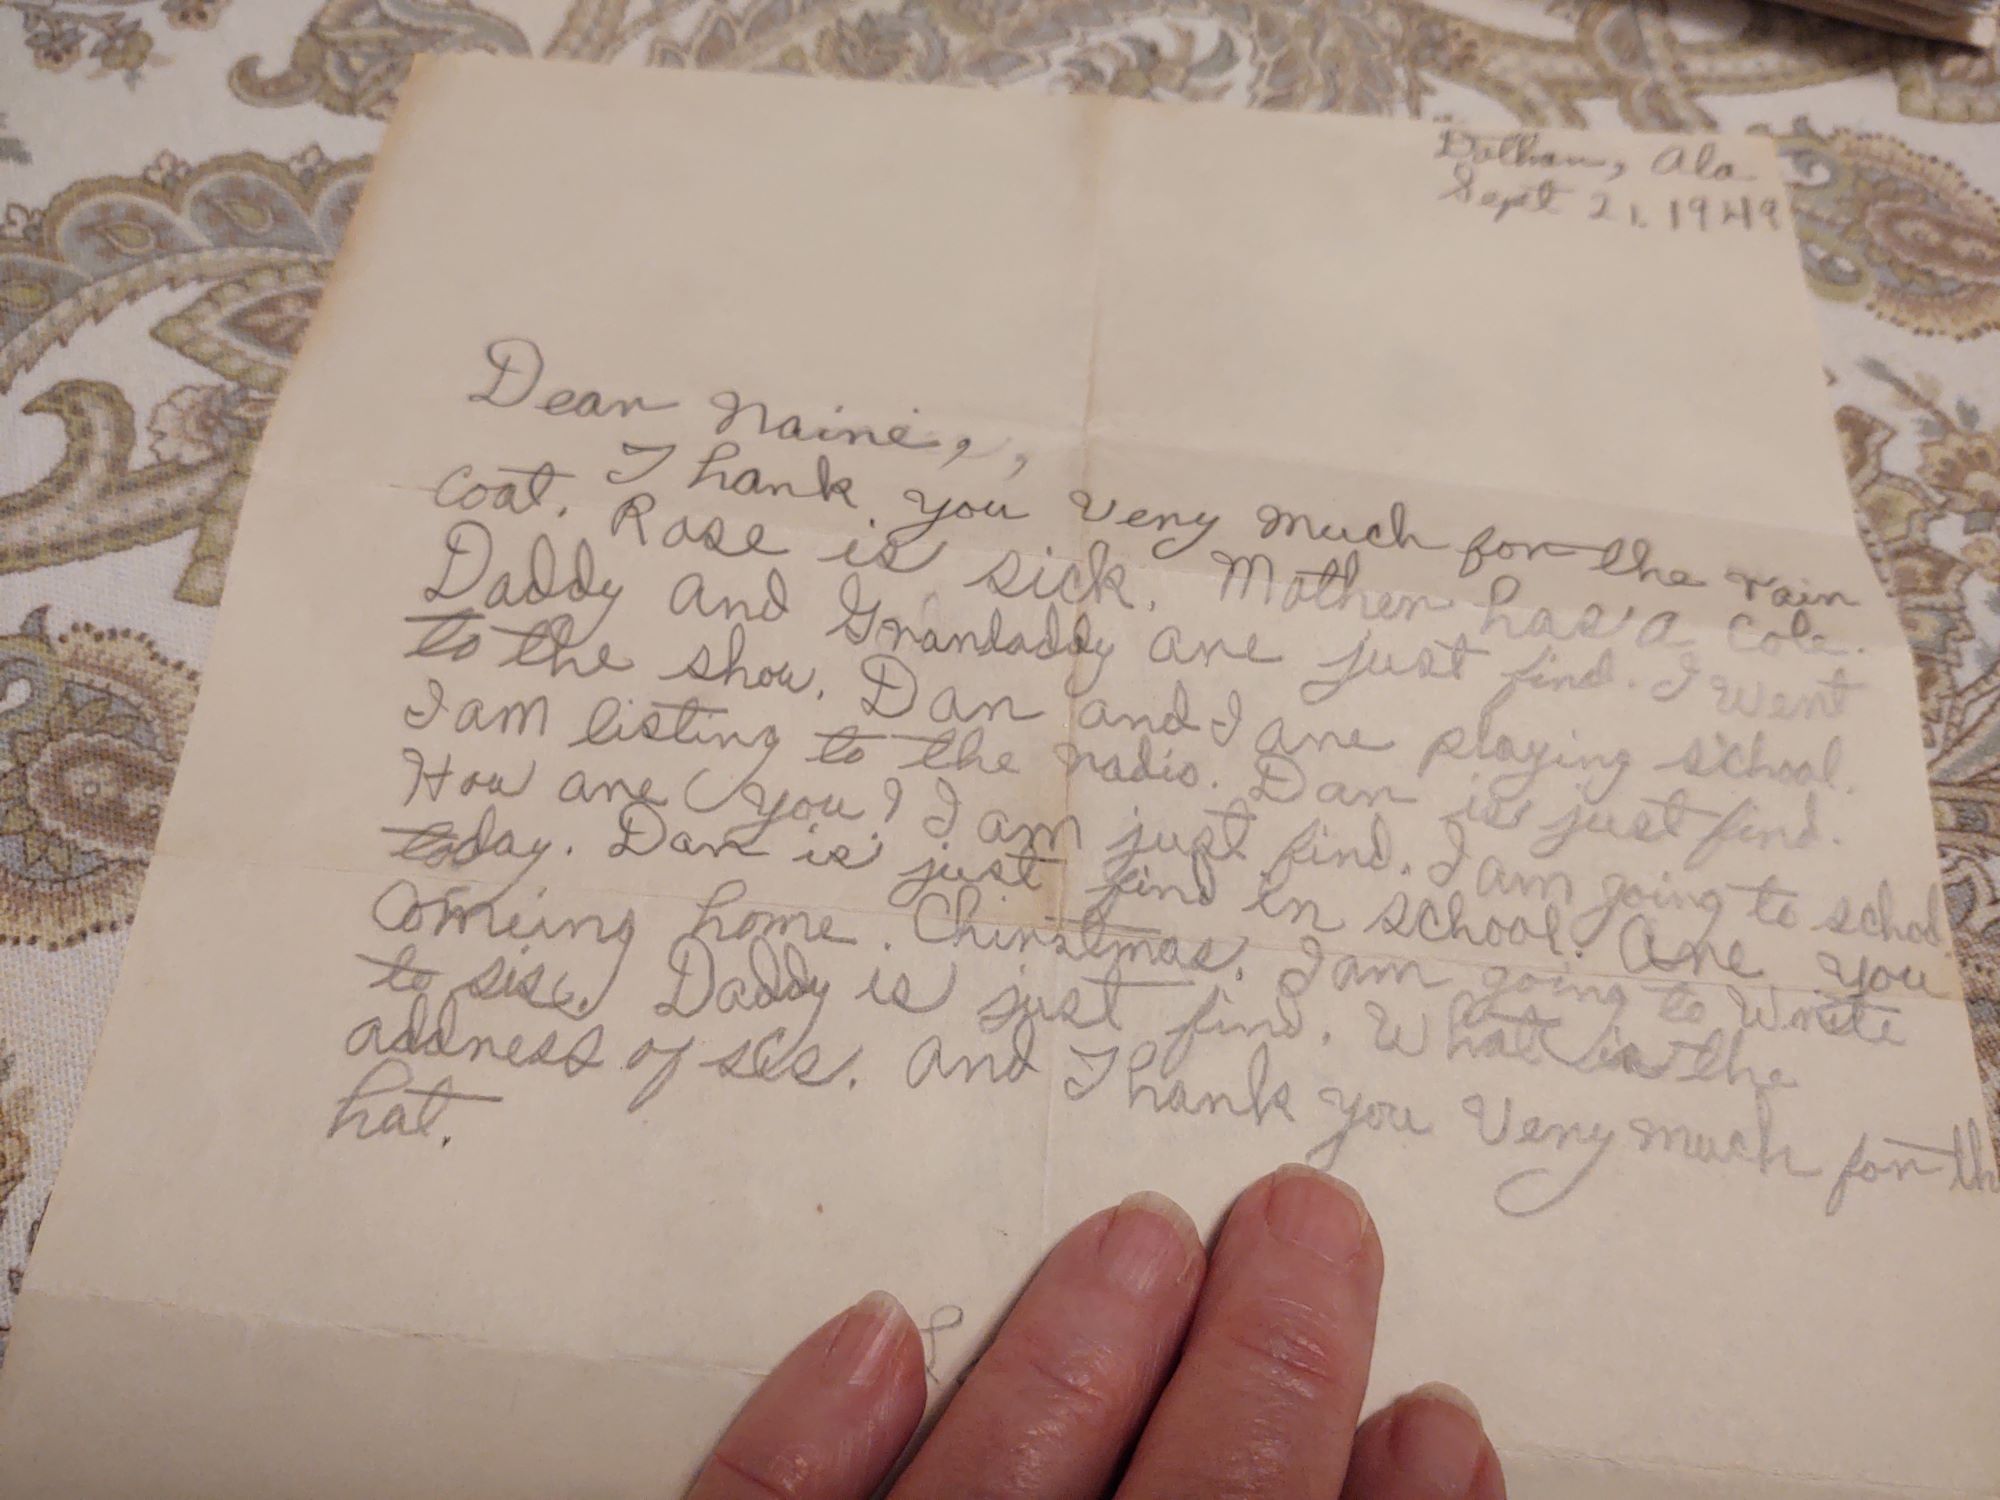 Dothan, Ala
Sept 21, 1949
Dear Naine,,
Thank you very much for the rain
coat. Rose is sick. Mother has a cole.
Daddy and Grandaddy are just find. I went
to the show. Dan and I are playing school.
I am listing to the radio. Dan is just find.
How are you? I am just find. I am going to school
today. Dan is just find in school. Are you
comeing home. Chirstmas. I am going to write
to sis. Daddy is just find. What is the
address of sis. and Thank you very much for th
hat.